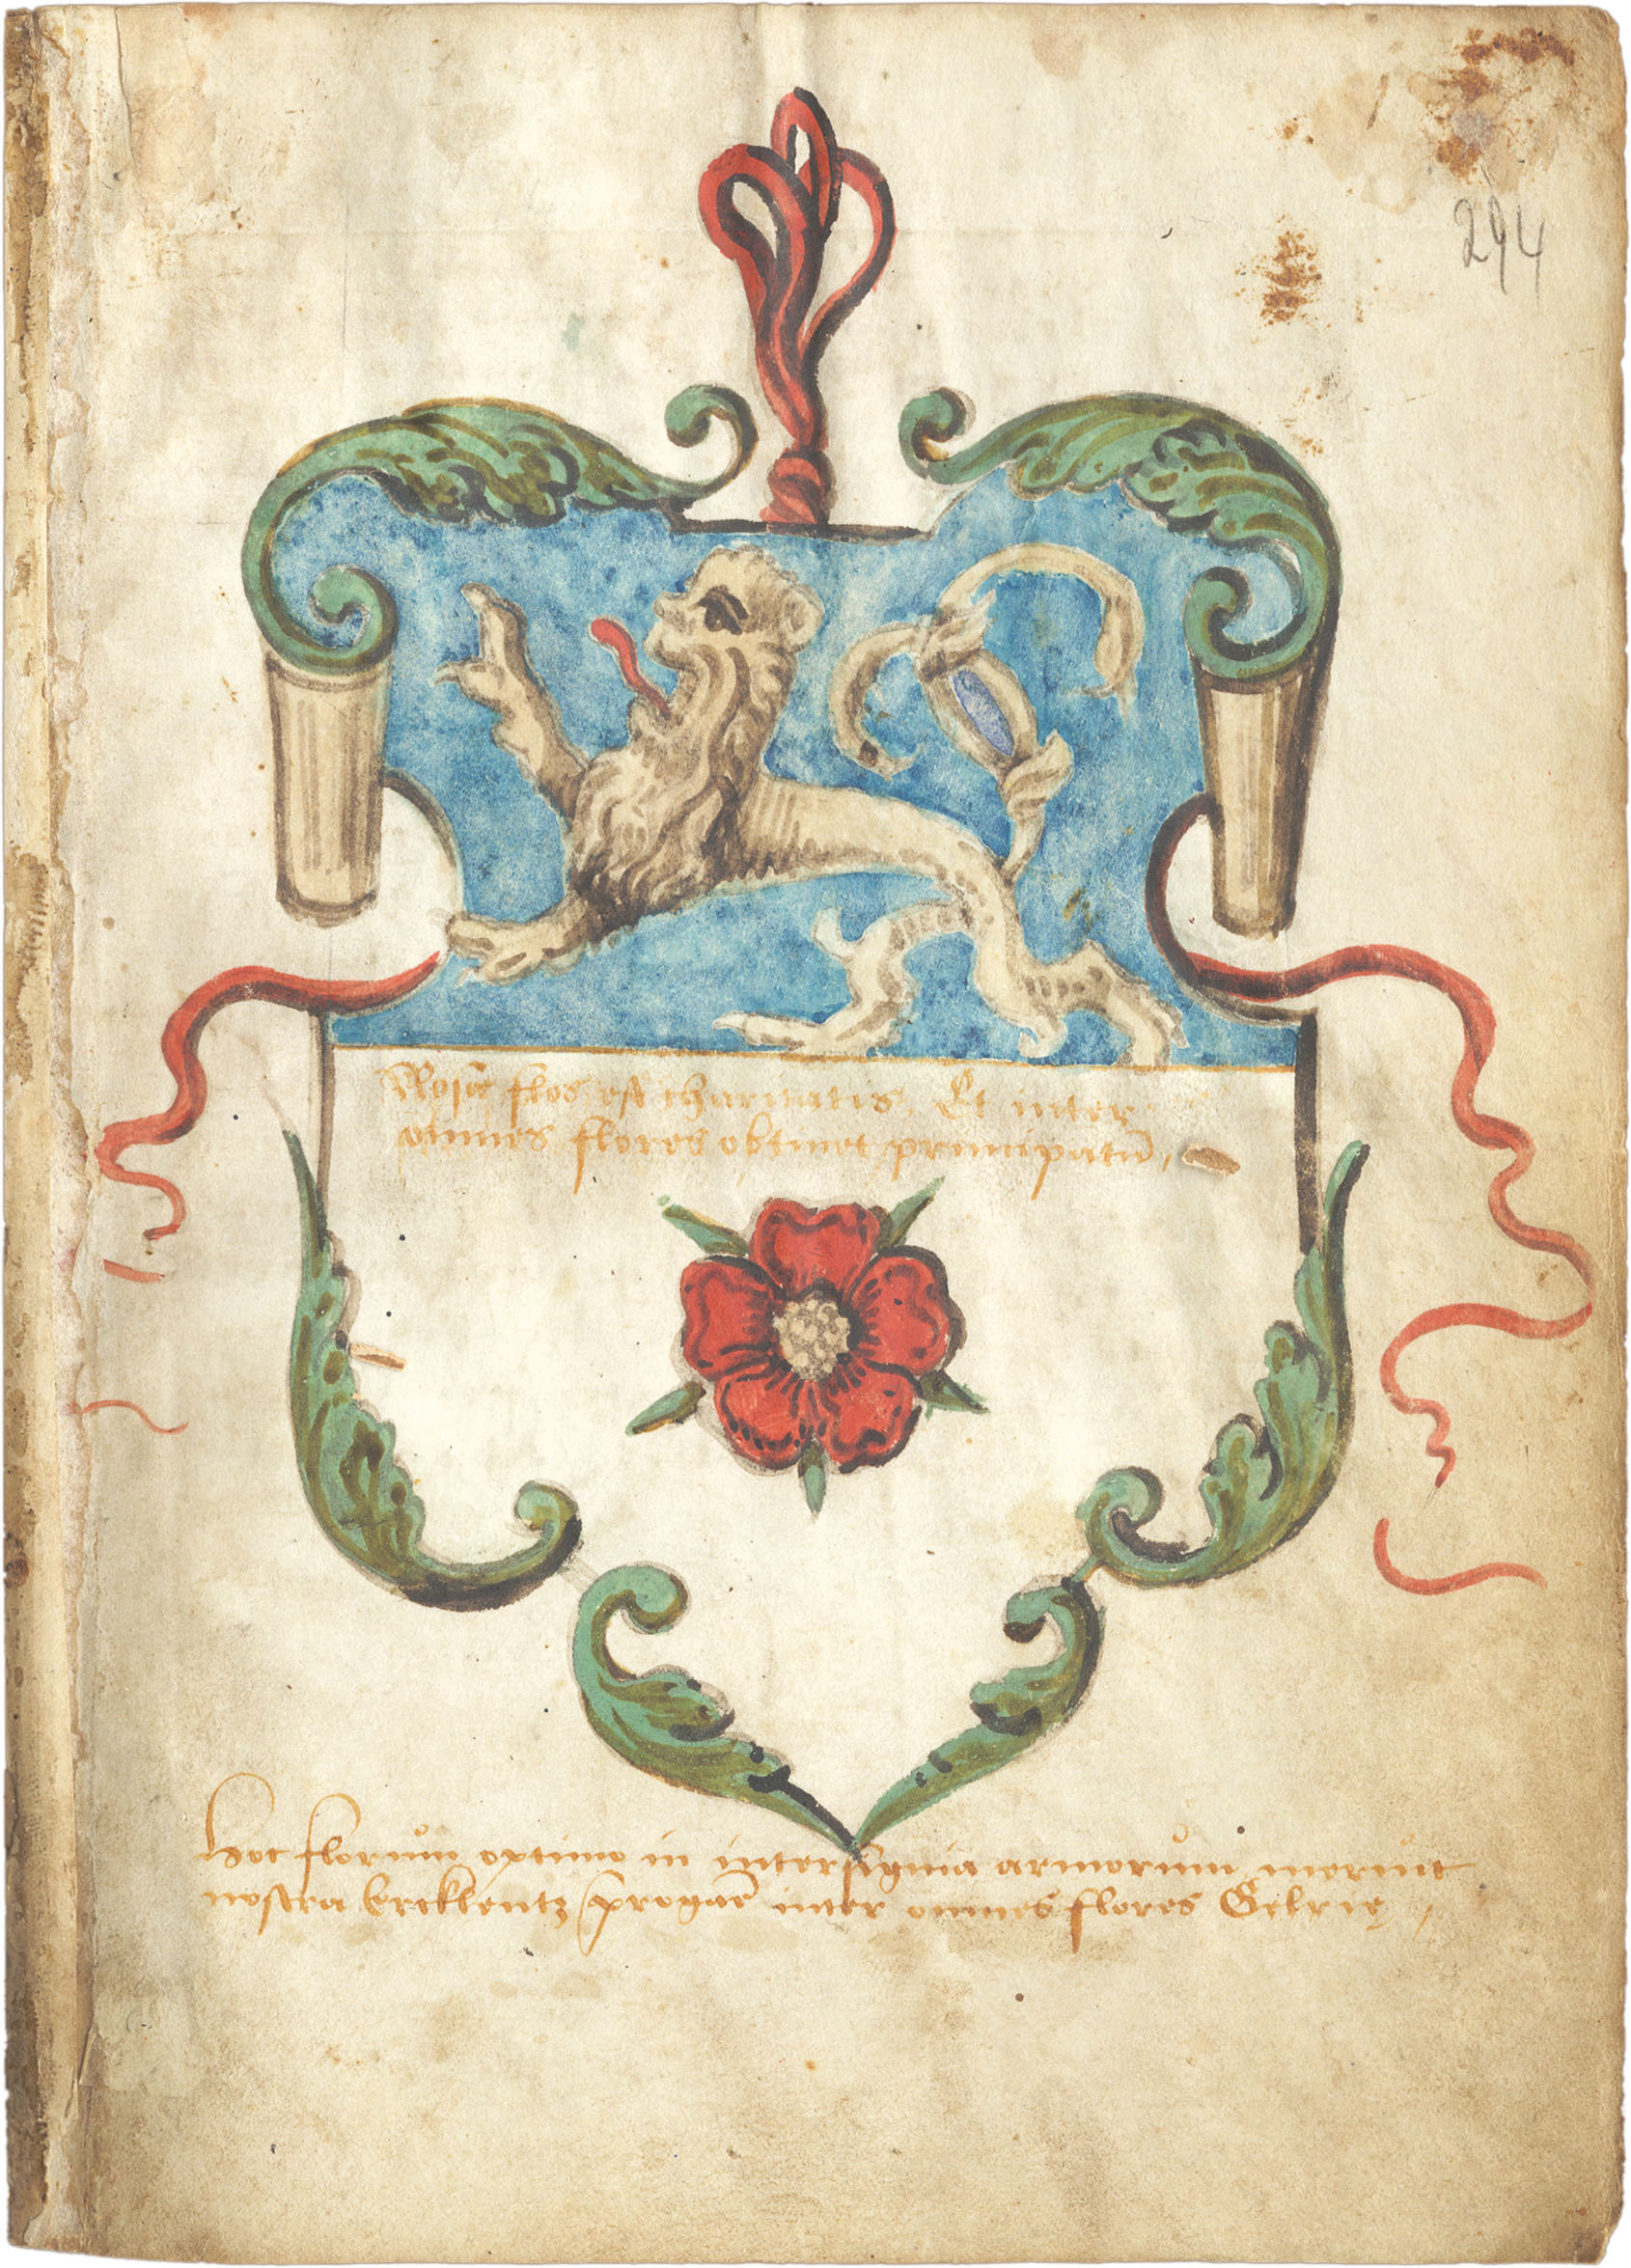 294
Rosa flos est charitatis. Et inter
omnes flores obtinet principatū,
Hoc florum optimo in intersignia armorum meruit
nostra Ercklentz inter omnes flores Gelrię,